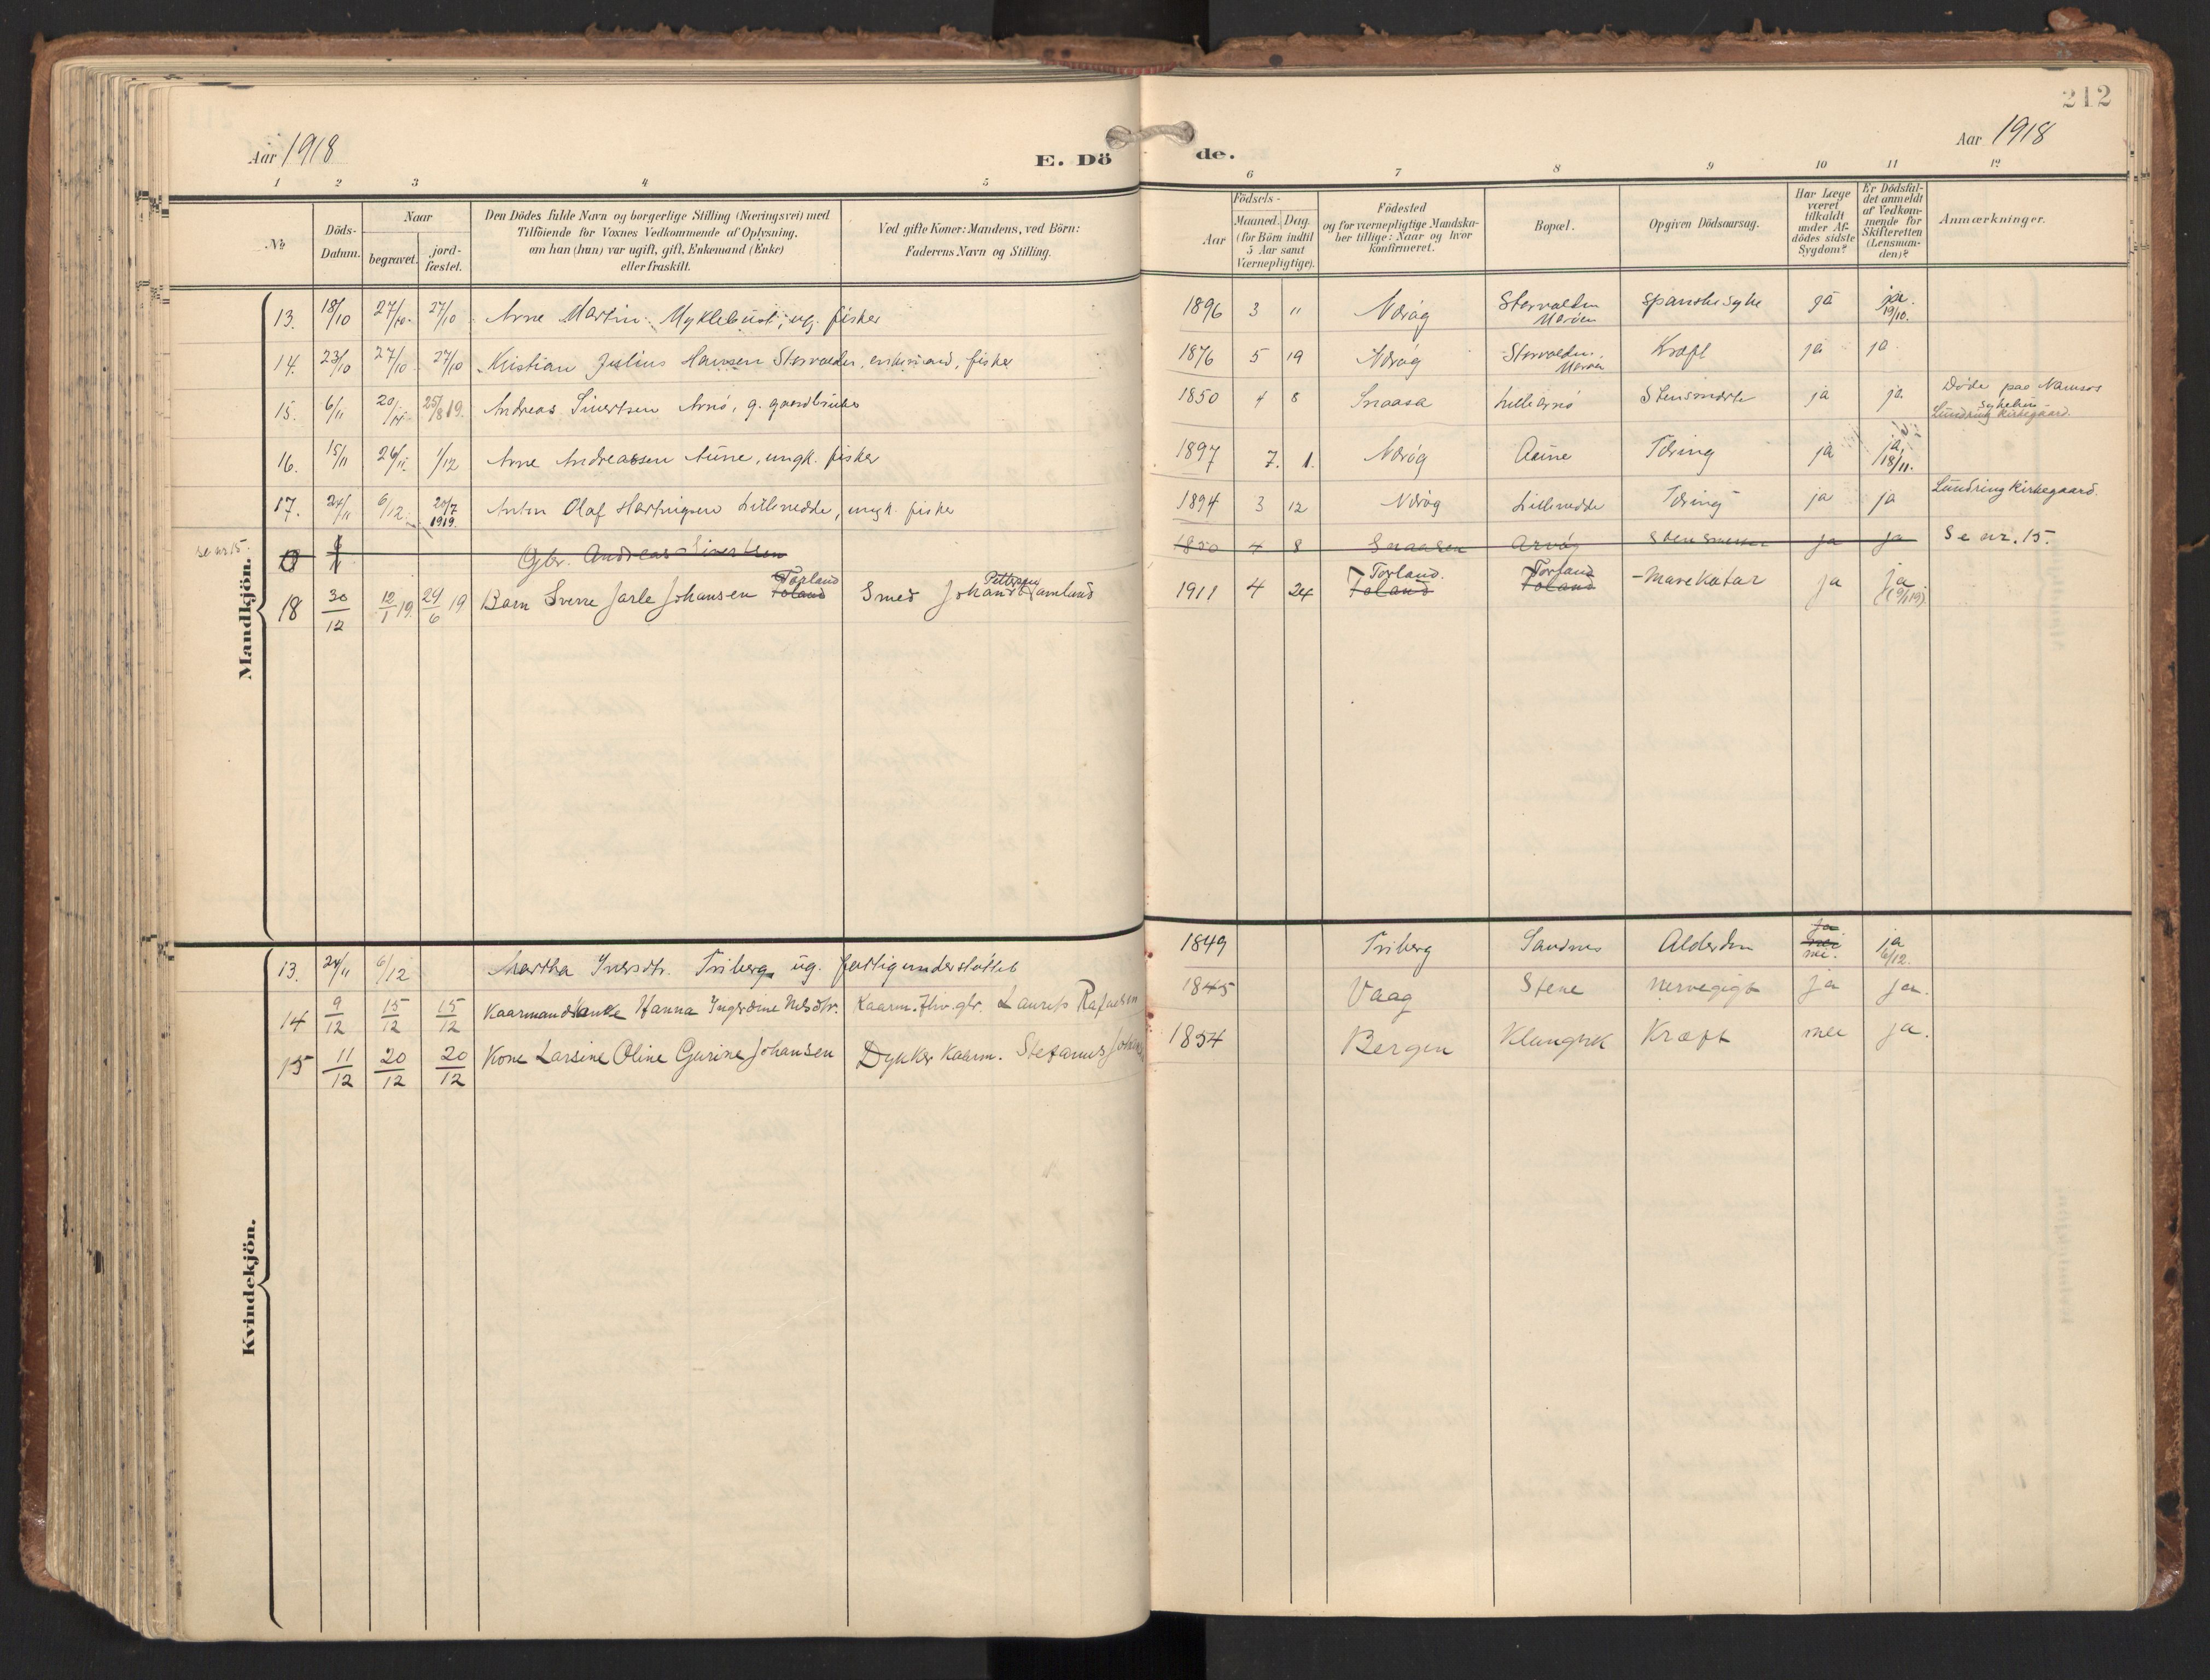 212
Aar 1918
E. Dö
de.
Aar 1918
1 2 3 4 5 6 7 8 9 10 11 12
№
Döds-Datum.
Naar
begravet.
jord-fæstet.
Den Dödes fulde Navn og borgerlige Stilling (Næringsvei) med
Tilföiende for Voxnes Vedkommende af Oplysning,
om han (hun) var ugift, gift, Enkemand (Enke)
eller fraskilt.
Ved gifte Koner: Mandens, ved Börn:
Faderens Navn og Stilling.
Födsels-
Aar
Maaned. Dag.
(for Börn indtil
5 Aar samt
Værnepligtige).
Födested
og for værnepligtige Mandska-
ber tillige: Naar og hvor
konfirmeret.
Bopæl.
Opgiven Dödsaarsag.
Har Læge
været
tilkaldt
under Af-
dödes sidste
Sygdom?
Er Dödsfal-
det anmeldt
af Vedkom-
mende for
Skifteretten
(Lensman-
den)?
Anmærkninger.
Mandkjön.
13. 18/10 27/10 27/10 Arne Martin Myklebust, ug. fisker 1896 3 " Nærøy Storvalden Marøen spanske syke ja ja. 19/10.
14. 23/10 27/10 27/10 Kristian Julius Hansen Storvalden, enkemand, fisker 1876 5 19 Nærøy Storvalden, Marøen Kræft ja ja
15. 6/11 20/11 25/8 19. Andreas Sivertsen Arnø, g. gaardbruker 1850 4 8 Snaasa Lillearnø Stensmerte ja ja Døde paa Namsos sykehus Lundring kirkegaard.
16. 15/11 26/11 1/12 Arne Andreassen Aune, ungk. fisker 1897 7. 1. Nærøy Aune Tæring ja ja, 18/11.
17. 24/11 6/12 20/7 1919. Anton Olaf Hartvigsen Lillevedde, ungk. fisker 1894 3 12 Nærøy Lillevedde Tæring ja ja Lundring kirkegaard.
se nr 15. Gbr. Andreas Sivertsen 1850 4 8 Snaasen Arnøy ja ja Se nr. 15.
18 30/12 12/1 19. 24/6 19 Barn Sverre Jarle Johansen Toland Torland Smed Johan Pettersen 1911 4 24 Toland Torland. Toland Torland Mavekatar ja ja (9/1 19).
Kvindekjön.
13. 24/11 6/12 Martha Iversdtr. Triberg ug. fattigunderstøttet 1849 Triberg Sandnes Alderdom ja nei nei. ja 6/12.
14 9/12 15/12 15/12 Kaarmandsenke Hanna Ingerdine Nelsdtr. Kaarm. Hiv. gbr. Laurits Rafaelsen 1845 Vaag Stene Nervegigt ja ja.
15 11/12 20/12 20/12 Kone Larsine Oline Gurine Johansen Dykker Kaarm. Stefanus Johans 1854 Bergen Klungvik Kræft nei ja.